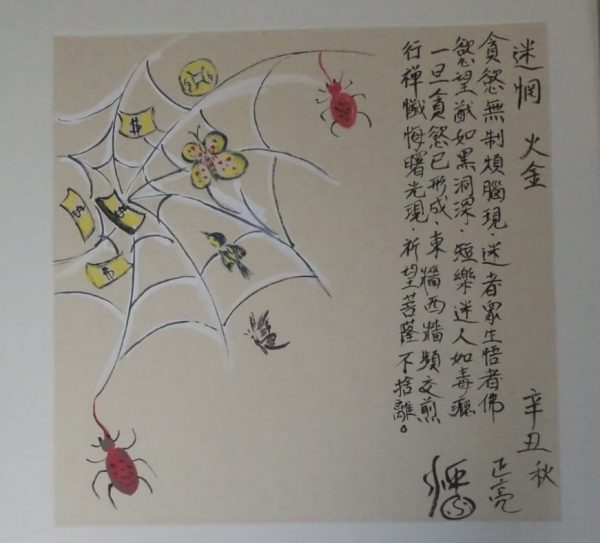 迷惘 火金
貪慾無制煩腦現.迷者眾生悟者佛
慾望猶如黑洞深.短樂迷人如毒癮
一旦貪慾已形成.東牆西牆頻交煎
行禪懺悔曙光現.祈望菩薩不捨離。
辛丑秋
正亮
$